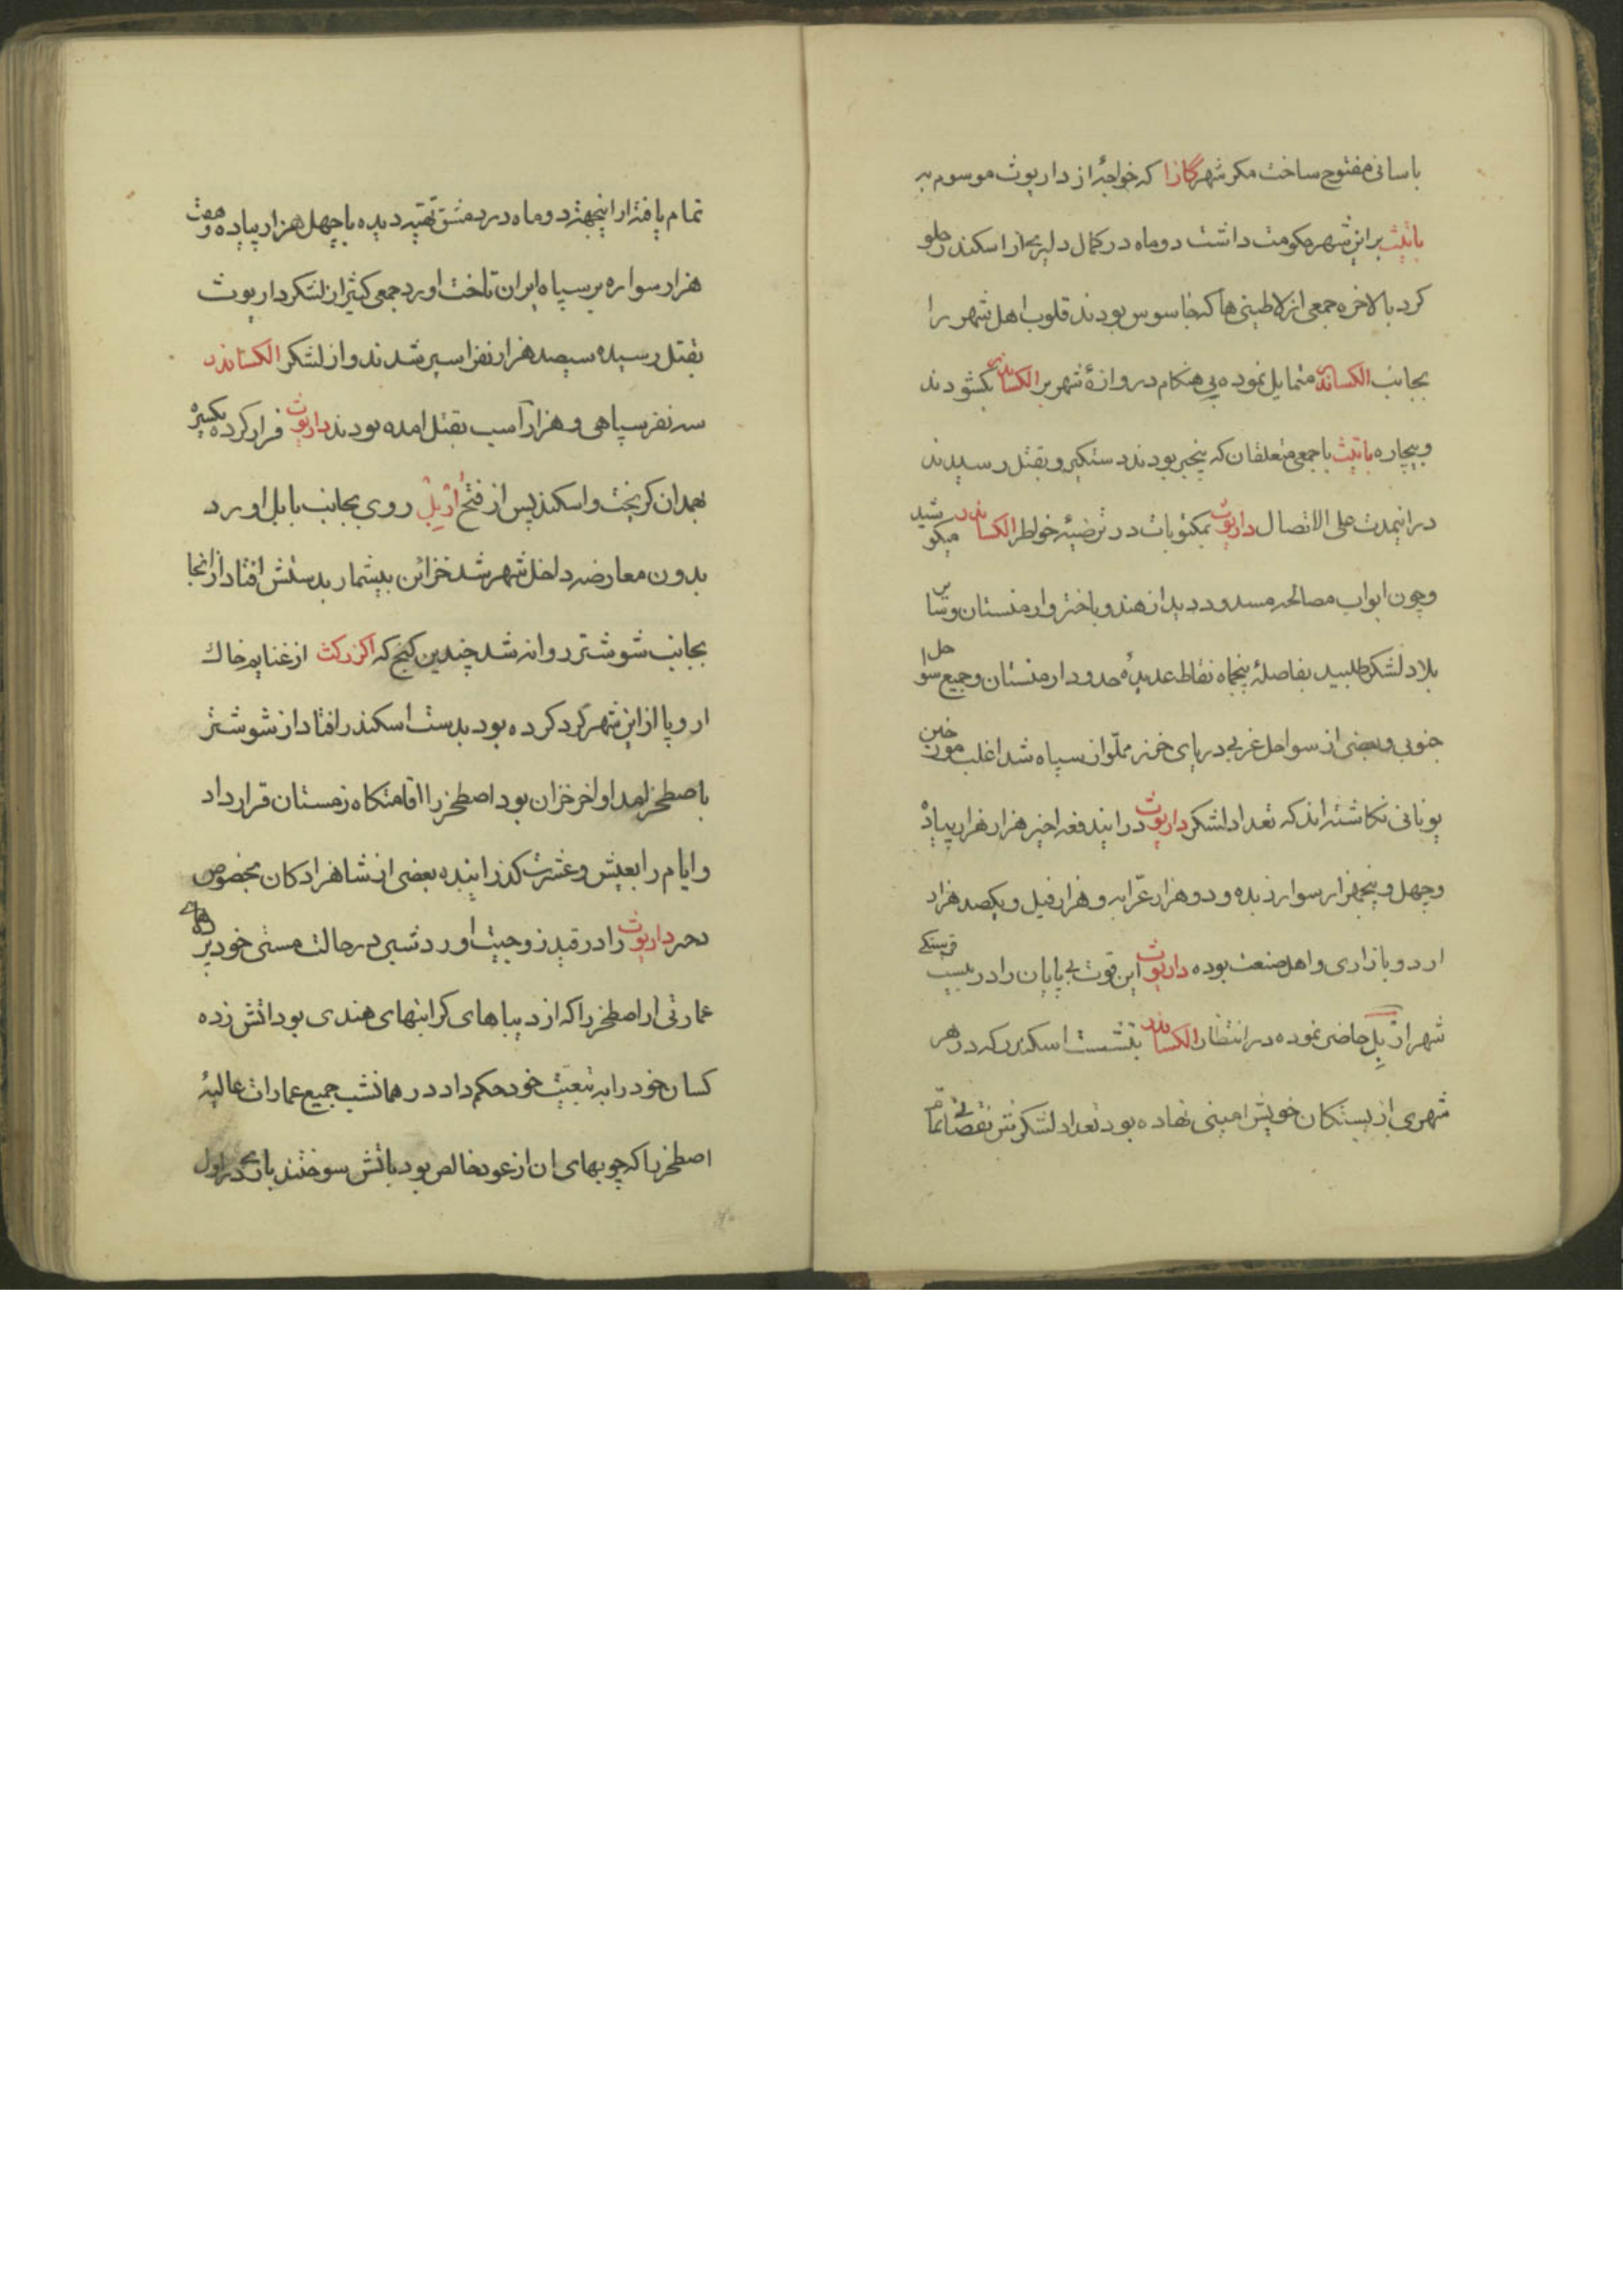 باسانی مفتوح ساخت مکر شهر گازا که خواجهٔ از داریوث موسوم به
باتیث براین شهر حکومت داشت دو ماه در کمال دلیری از اسکندر جلو
کرد بالاخره جمعی از لاطینی ها که جاسوس بودند قلوب اهل شهر را
بجانب الکساندر متمایل نموده بی هنکام دروازهٔ شهر بر الکساندر بکشودند
و بیچاره باتیث با جمعی متعلقان که بیخبر بودند دستکیر و بقتل رسیدند
در اینمدت علی الاتصال داریوث بمکتوبات در ترضیهٔ خواطر الکساندر میکوشید
و چون ابواب مصالحه مسدود دید از هند و باختر و ارمنستان و سایر
بلاد لشکر طلبید بفاصلهٔ پنجماه نقاط عدیدهٔ حدود ارمنستان و جمیع سواحل
جنوبی و بعضی از سواحل غربی دریای خزر مملو از سپاه شد اغلب مورخین
یونانی نکاشته اند که تعداد لشکر داریوث در ایندفعه اخیر هزار هزار پیاده
و چهل و پنجهزار سوار زبده و دو هزار عرابه و هزار فیل و یکصد هزار
اردو بازاری و اهل صنعت بوده داریوث این قوت بی پایان را در بیست فرسنکی
شهر ارْبِل حاضر نموده در انتظار الکساندر بنشست اسکندر که در هر
شهری از بستکان خویش امینی نهاده بود تعداد لشکرش نقصانی تمام
تمام یافته از اینجهت دو ماه در دمشق تهیه دیده با چهل هزار پیاده و هفت
هزار سواره بر سپاه ایران تاخت اورد جمعی کثیر از لشکر داریوث
بقتل رسیده سیصد هزار نفر اسیر شدند و از لشکر الکساندر
سه نفر سپاهی و هزار اسب بقتل امده بودند داریوث فرار کرده یکسره
بهمدان کریخت و اسکندر پس از فتح اُرْبِلْ روی بجانب بابل اورد
بدون معارضه داخل شهر شد خزائن بیشمار بدستش افتاد از انجا
بجانب شوشتر روانه شد چندین کنج که اکزرکث از غنایم خاك
اروپا از این شهر کرد کرده بود بدست اسکندر افتاد از شوشتر
باصطخر امد اواخر خزان بود اصطخر را اقامتکاه زمستان قرار داد
و ایام را بعیش و عشرت کذرانیده بعضی از شاهزادکان مخصوص
دختر داریوث را در قید زوجیت اورد شبی در حالت مستی خود بر
عمارتی از اصطخر را که از دیباهای کرانبهای هندی بود اتش زده
کسان خود را به تبعیت خود حکم داد در همانشب جمیع عمارات عالیهٔ
اصطخر را که چوبهای ان از عود خالص بود باتش سوختند